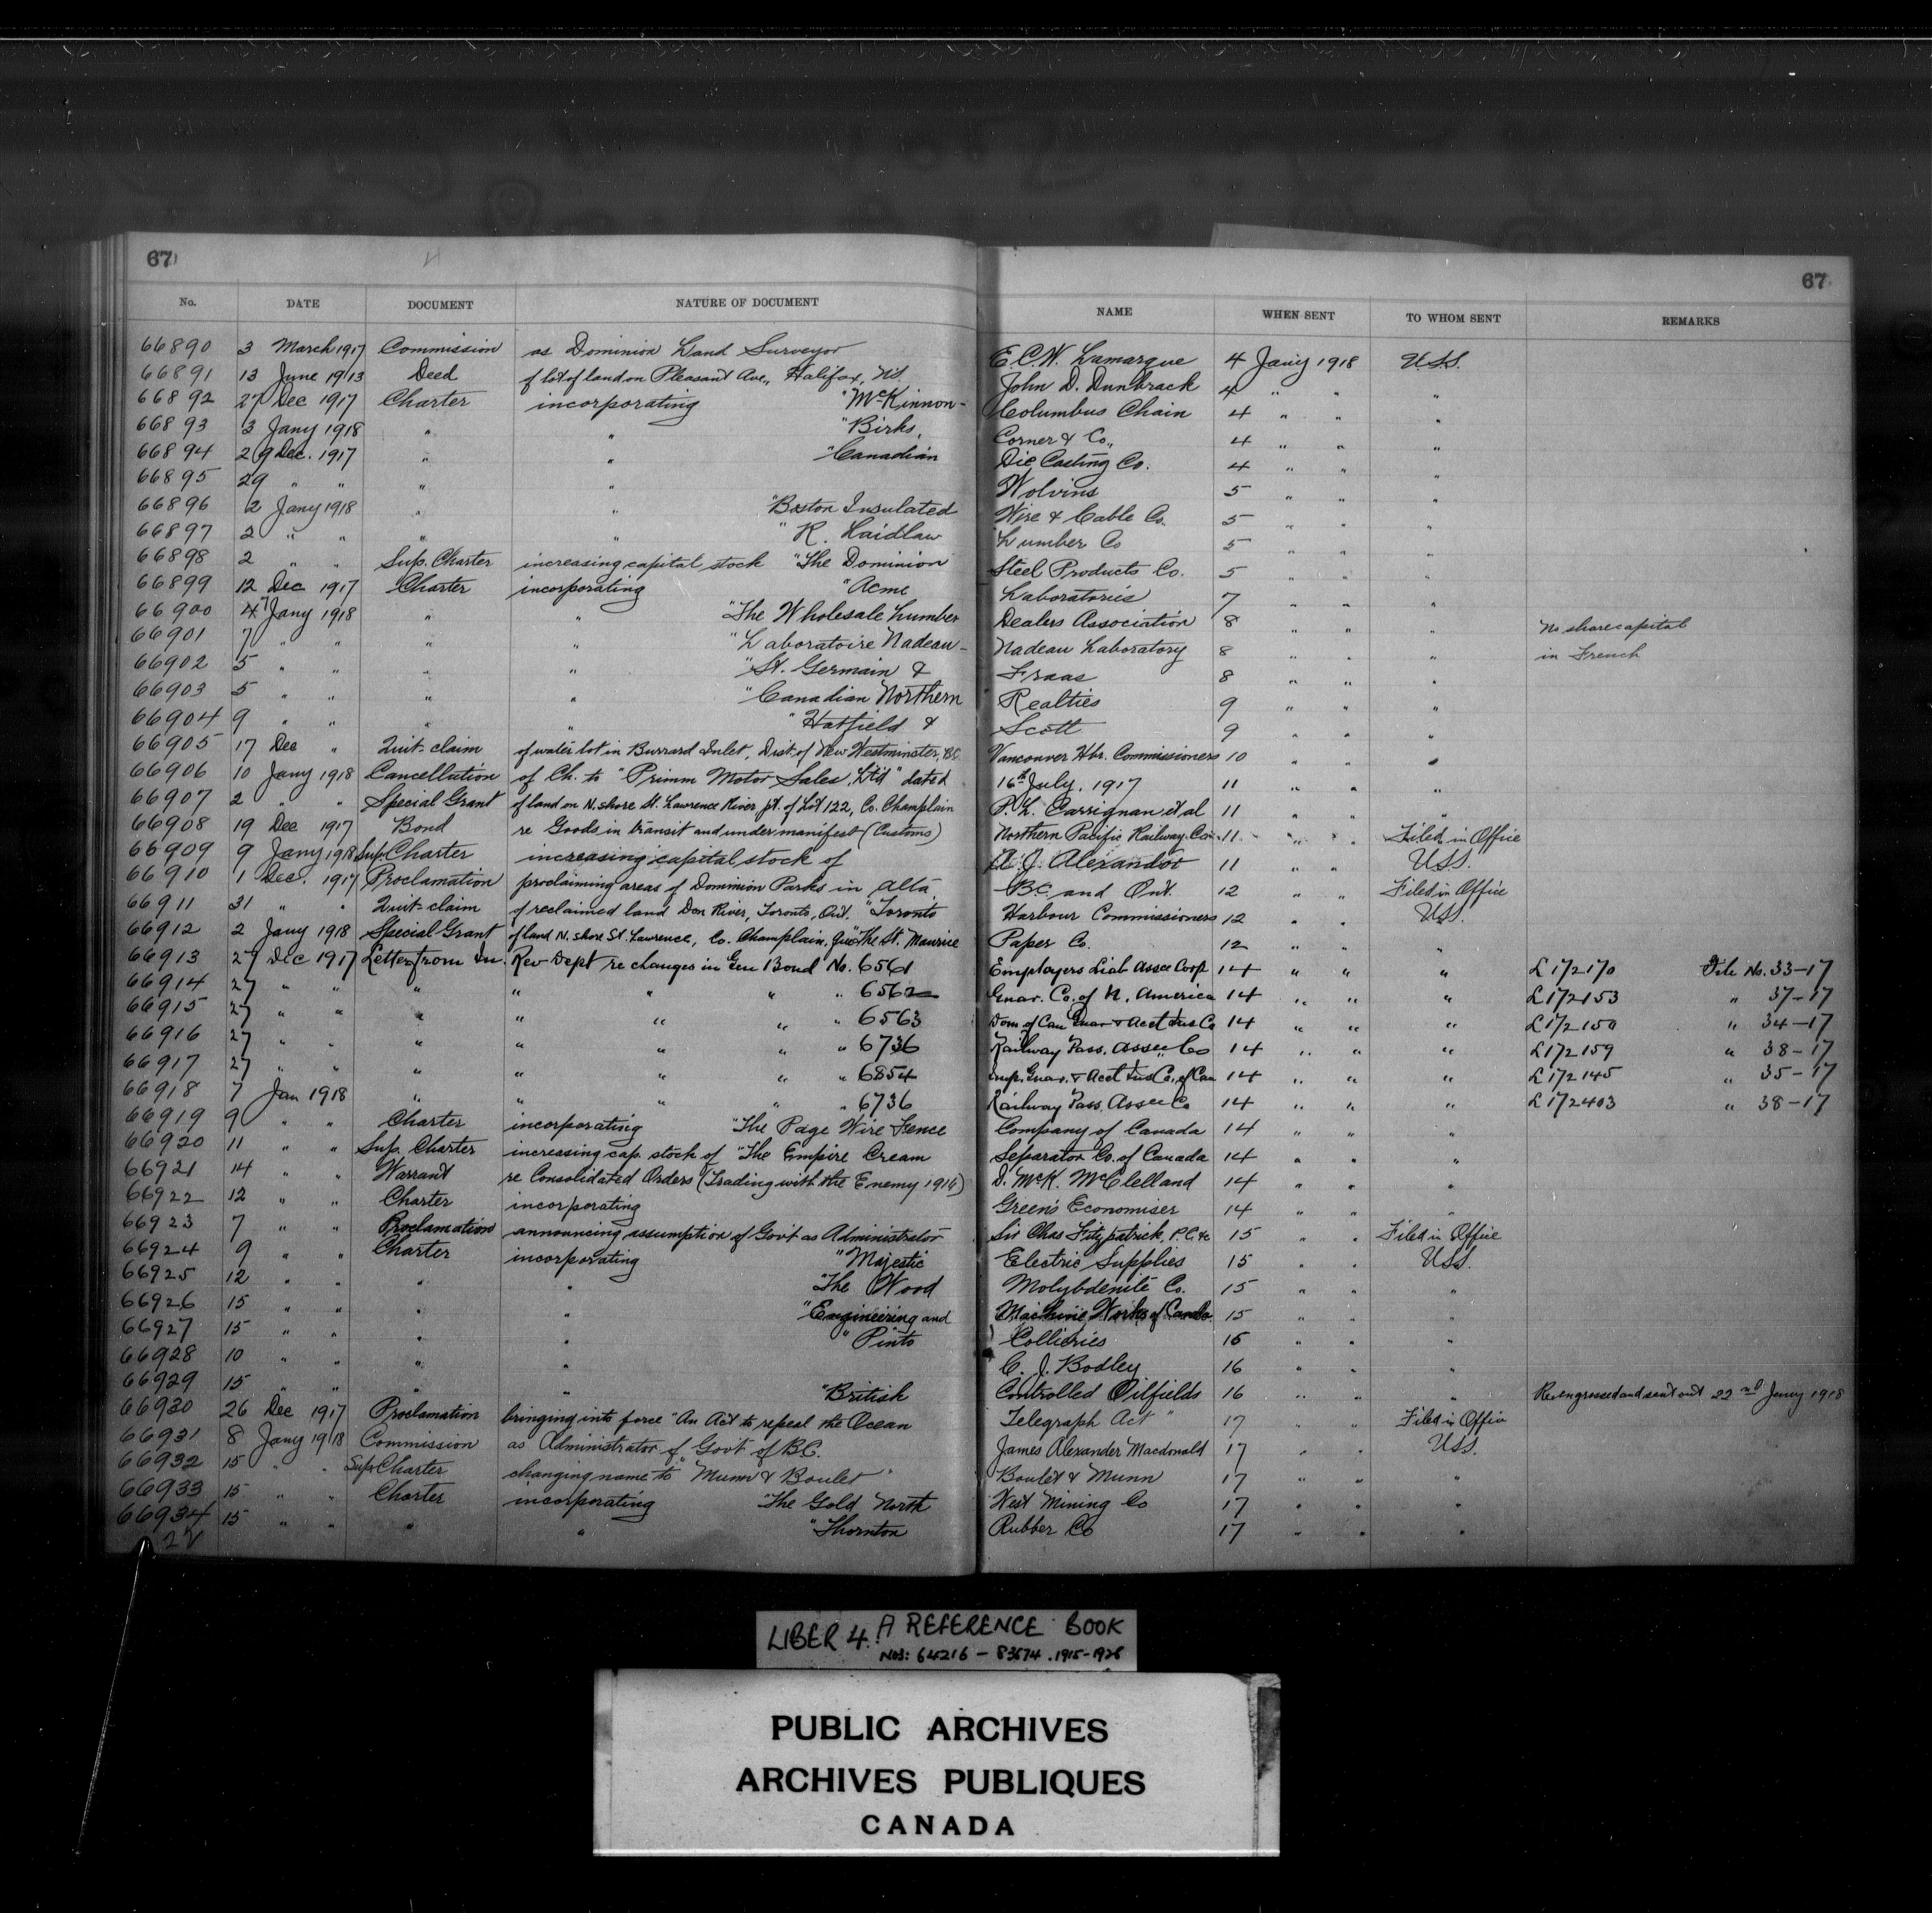 67 67
No. DATE DOCUMENT NATURE OF DOCUMENT NAME WHEN SENT TO WHOM SENT REMARKS
66890 3 March 1917 Commission as Dominion Land Surveyor E.C.W. Lamarque 4 Jany 1918 USS.
66891 13 June 1913 Deed of lot of land on Pleasant Ave., Halifax, NS. John D. Dunbrack 4 " " "
66892 27 Dec 1917 Charter incorporating "McKinnon- Columbus Chain 4 " " "
66893 3 Jany 1918 " " "Birks, Corner & Co., 4 " " "
66894 29 Dec. 1917 " " "Canadian Die Casting Co. 4 " " "
66895 29 " " " " Wolvins 5 " " "
66896 2 Jany 1918 " " "Boston Insulated Wire & Cable Co. 5 " " "
66897 2 " " " " "R. Laidlaw Lumber Co 5 " " "
66898 2 " " Sup. Charter increasing capital stock "The Dominion Steel Products Co. 5 " " "
66899 12 Dec 1917 Charter incorporating "Acme Laboratories 7 " " "
66900 4 Jany 1918 " " "The Wholesale Lumber Dealers Association 8 " " " No share capital
66901 7 " " " " "Laboratoire Nadeau- Nadeau Laboratory 8 " " " in French
66902 5 " " " " "St. Germain & Fraas 8 " " "
66903 5 " " " " "Canadian Northern Realties 9 " " "
66904 9 " " " " "Hatfield & Scott 9 " " "
66905 17 Dec " Quit-claim of water lot in Burrard Inlet, Dist. of New Westminster, BC Vancouver Hbr. Commissioners 10 " " "
66906 10 Jany 1918 Cancellation of Ch. to "Primm Motor Sales, Ltd" dated 16th July, 1917 11 " " "
66907 2 " " Special Grant of land on N. shore St. Lawrence River pt. of Lot 122, Co. Champlain P.L. Carrignan et al 11 " " "
66908 19 Dec 1917 Bond re Goods in transit and under manifest (Customs) Northern Pacific Railway Co. 11 " " Filed in Office
66909 9 Jany 1918 Sup. Charter increasing capital stock of A. J. Alexandor 11 " " USS.
66910 1 Dec. 1917 Proclamation proclaiming areas of Dominion Parks in Alta B.C. and Ont. 12 " " Filed in Office
66911 31 " " Quit-claim of reclaimed land Don River, Toronto, Ont. "Toronto Harbour Commissioners 12 " " USS.
66912 2 Jany 1918 Special Grant of land N. shore St. Lawrence, Co. Champlain, Que "The St. Maurice Paper Co. 12 " " "
66913 27 Dec 1917 Letter from In. Rev Dept re changes in Gen Bond No. 6561 Employers Liab Assce Corp 14 " " " L172170 File No. 33-17
66914 27 " " " " " " " 6562 Guar. Co. of N. America 14 " " " L172153 " 37-17
66915 27 " " " " " " " 6563 Dom of Can Guar & Acct Ins Co 14 " " " L172150 " 34-17
66916 27 " " " " " " " 6736 Railway Pass. Assce Co 14 " " " L172159 " 38-17
66917 27 " " " " " " " 6854 Imp. Guar. & Acct Ins Co. of Can 14 " " " L172145 " 35-17
66918 7 Jan 1918 " " " " " 6736 Railway Pass. Assce Co 14 " " " L172403 " 38-17
66919 9 " " Charter incorporating "The Page Wire Fence Company of Canada 14 " " "
66920 11 " " Sup. Charter increasing cap. stock of "The Empire Cream Separator Co. of Canada 14 " " "
66921 14 " " Warrant re Consolidated Orders (Trading with the Enemy 1916) D. McK. McClelland 14 " " "
66922 12 " " Charter incorporating Green's Economiser 14 " " "
66923 7 " " Proclamation announcing assumption of Govt as Administrator Sir Chas Fitzpatrick, P.C. &c 15 " " Filed in Office
66924 9 " " Charter incorporating "Majestic Electric Supplies 15 " " USS.
66925 12 " " " " "The Wood Molybdenite Co. 15 " " "
66926 15 " " " " "Engineering and Machine Works of Canada 15 " " "
66927 15 " " " " "Pinto Collieries 15 " " "
66928 10 " " " " C. J. Bodley 16 " " "
66929 15 " " " " "British Controlled Oilfields 16 " " " Re-engrossed and sent out 22nd Jany 1918
66930 26 Dec 1917 Proclamation bringing into force "An Act to repeal the Ocean Telegraph Act" 17 " " Filed in Office
66931 8 Jany 1918 Commission as Administrator of Govt of B.C. James Alexander Macdonald 17 " " USS.
66932 15 " " Sup. Charter changing name to "Munn & Boulet" Boulet & Munn 17 " " "
66933 15 " " Charter incorporating "The Gold North West Mining Co 17 " " "
66934 15 " " " " "Thornton Rubber Co 17 " " "
LIBER 4. A REFERENCE BOOK
NOS: 64216 - 83674. 1915-1926
PUBLIC ARCHIVES
ARCHIVES PUBLIQUES
CANADA